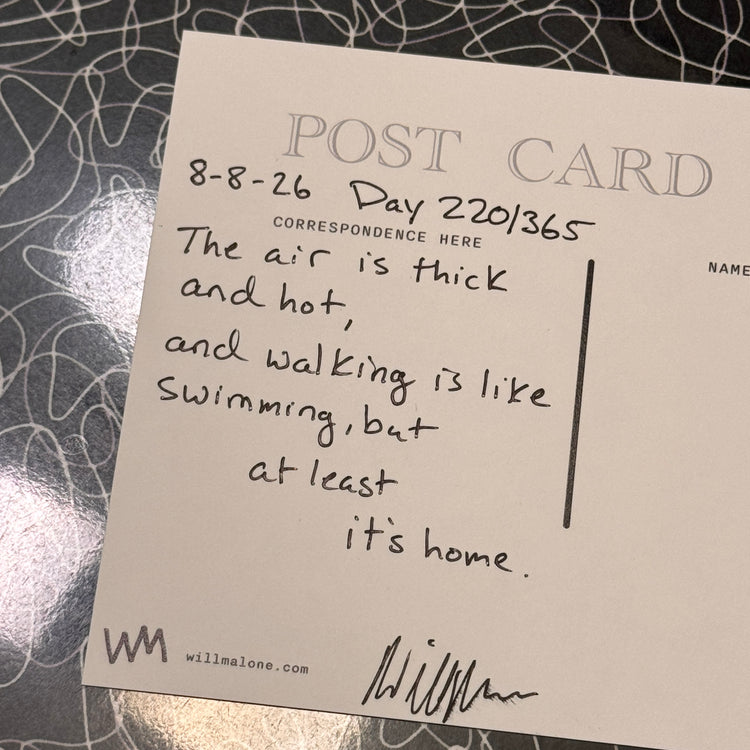 POST CARD
8-8-26 Day 220/365
CORRESPONDENCE HERE
NAME
The air is thick
and hot,
and walking is like
swimming, but
at least
it's home.
WM willmalone.com